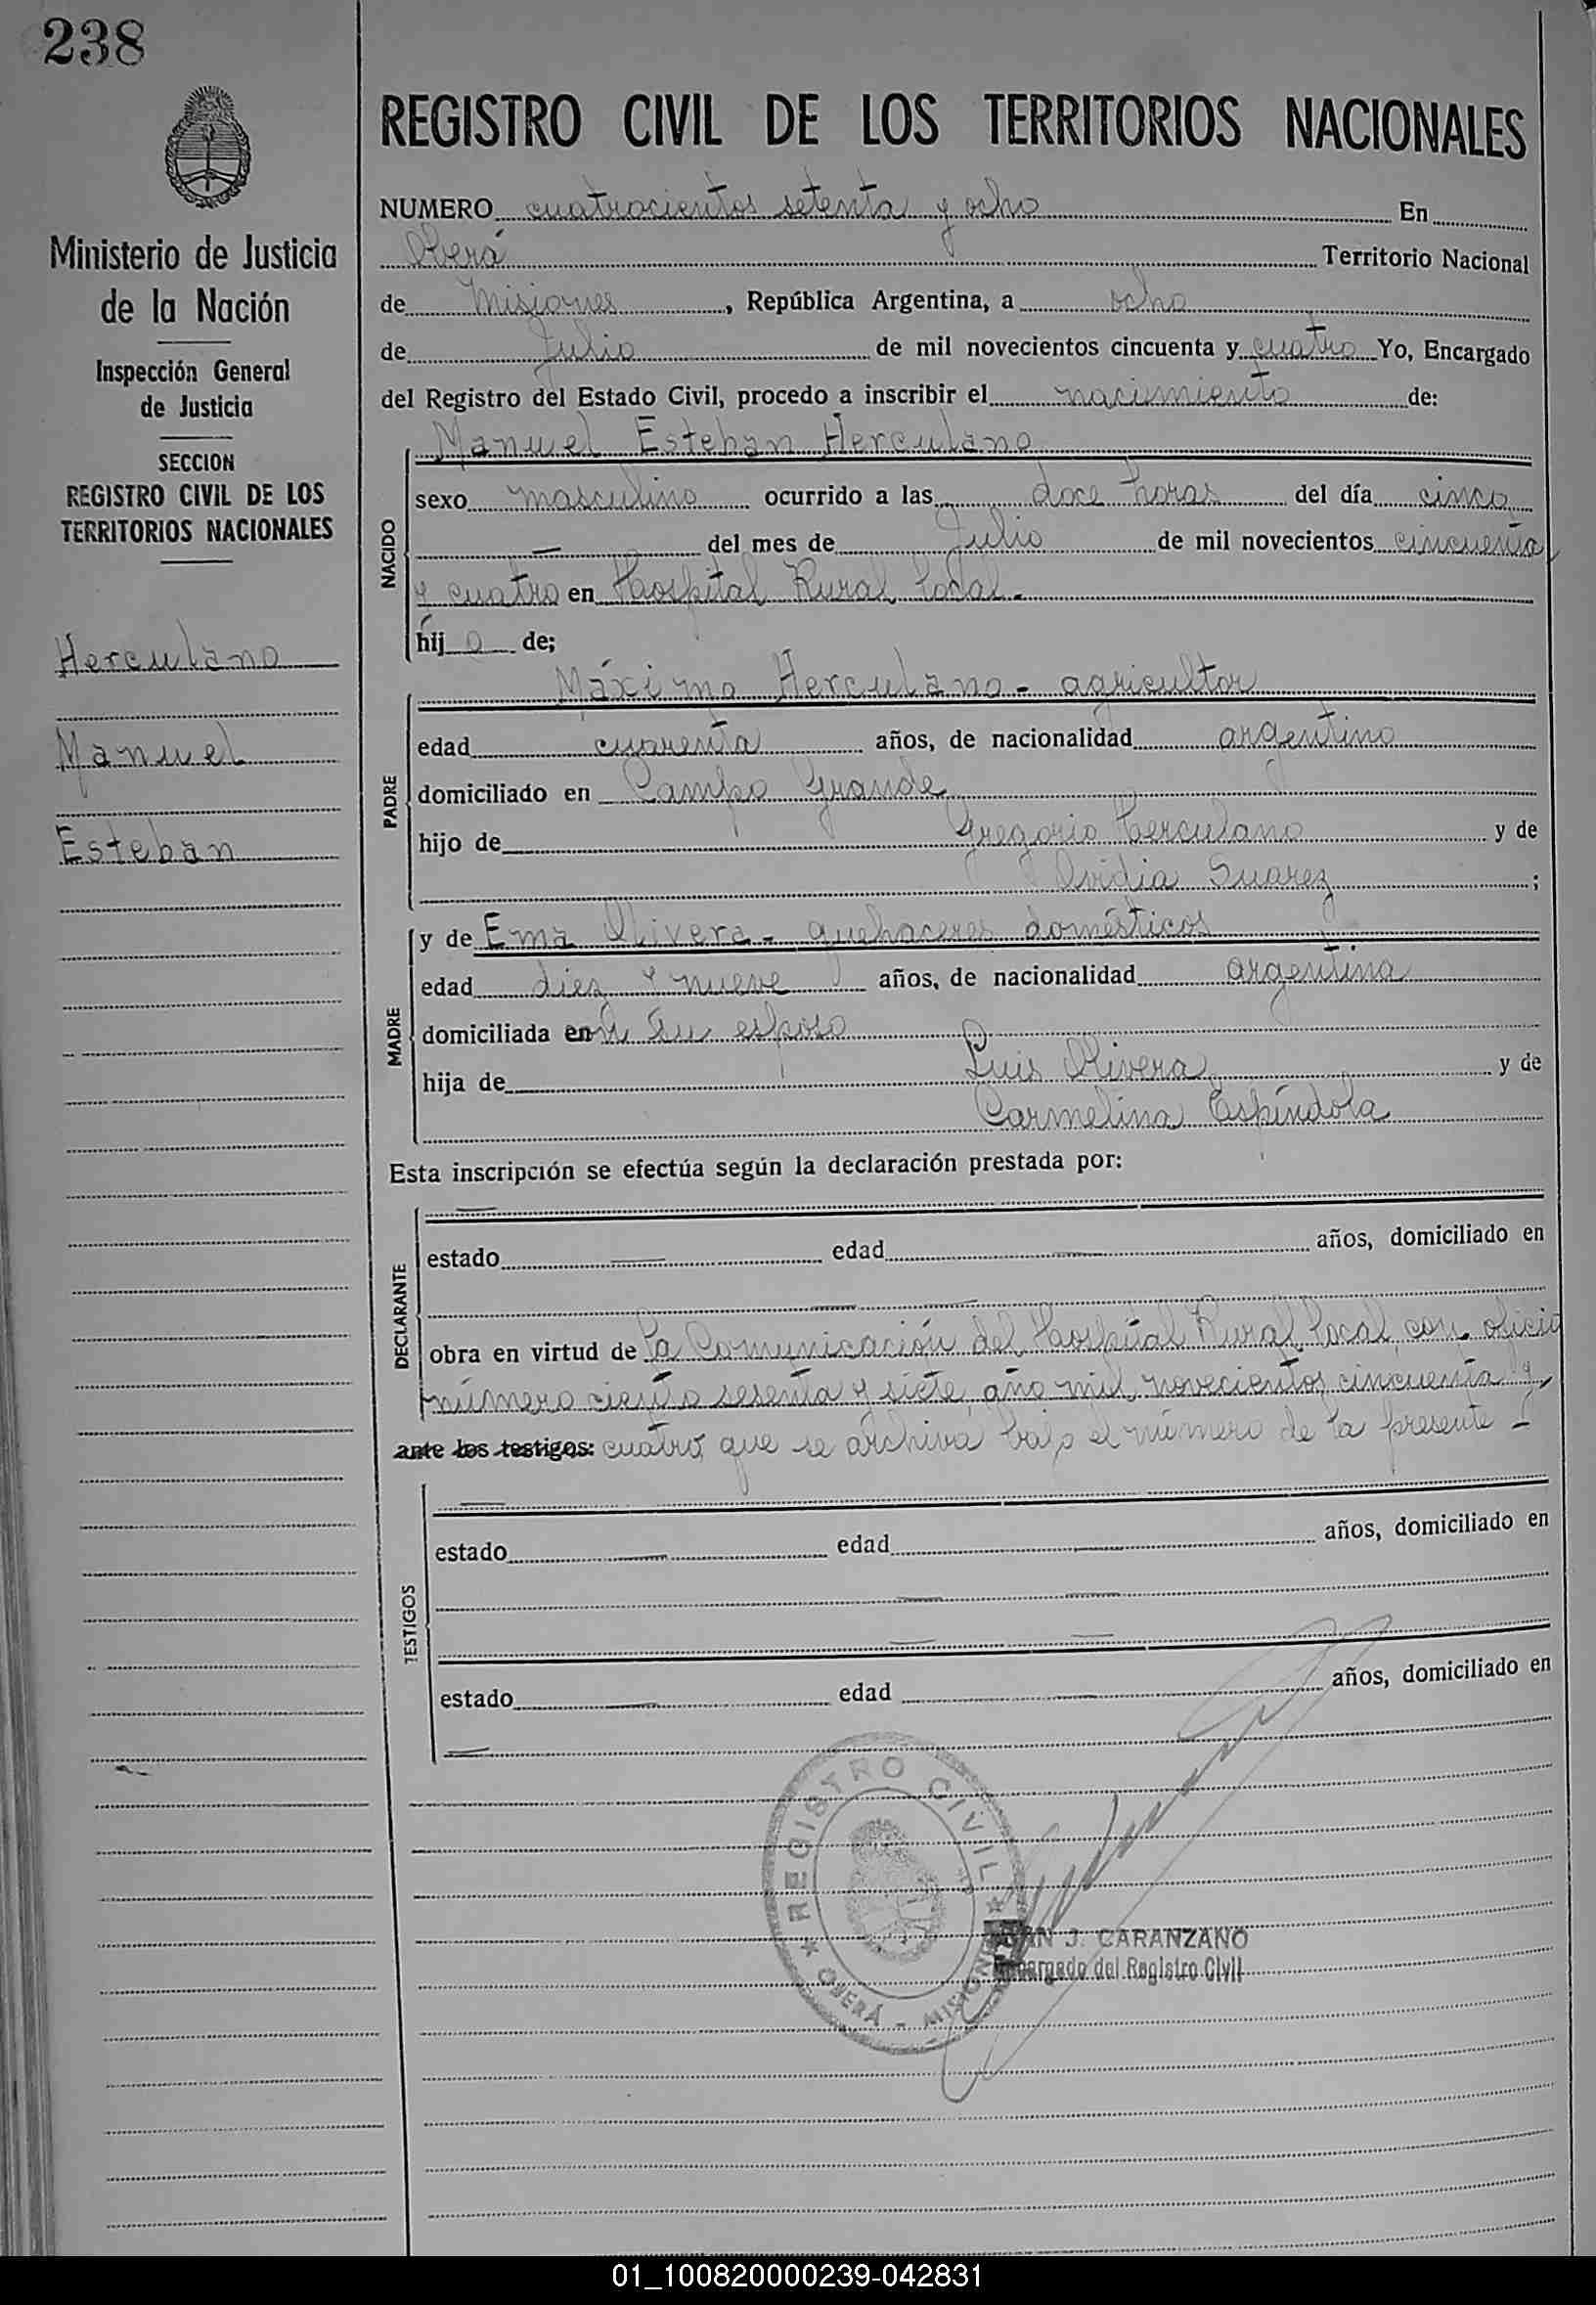 238
Ministerio de Justicia
de la Nación
Inspección General
de Justicia
SECCION
REGISTRO CIVIL DE LOS
TERRITORIOS NACIONALES
Herculano
Manuel
Esteban
REGISTRO CIVIL DE LOS TERRITORIOS NACIONALES
NUMERO cuatrocientos setenta y ocho En
Oberá Territorio Nacional
de Misiones, República Argentina, a ocho
de Julio de mil novecientos cincuenta y cuatro Yo, Encargado
del Registro del Estado Civil, procedo a inscribir el nacimiento de:
NACIDO
Manuel Esteban Herculano
sexo masculino ocurrido a las doce horas del día cinco
— del mes de Julio de mil novecientos cincuenta
y cuatro en Hospital Rural Local.
hij o de;
PADRE
Máximo Herculano - agricultor
edad cuarenta años, de nacionalidad argentino
domiciliado en Campo Grande
hijo de Gregorio Herculano y de
Ovidia Suarez ;
MADRE
y de Ema Olivera - quehaceres domésticos
edad diez y nueve años, de nacionalidad argentina
domiciliada en su esposo
hija de Luis Olivera y de
Carmelina Espíndola
Esta inscripción se efectúa según la declaración prestada por:
DECLARANTE
—
estado — edad — años, domiciliado en
— —
obra en virtud de la Comunicación del Hospital Rural Local, con oficio
número ciento sesenta y siete, año mil novecientos cincuenta y
ante los testigos: cuatro, que se archiva bajo el número de la presente -
TESTIGOS
—
estado — edad — años, domiciliado en
— —
— —
estado — edad — años, domiciliado en
—
REGISTRO CIVIL
OBERÁ - MISIONES
J. CARANZANO
Encargado del Registro Civil
01_100820000239-042831